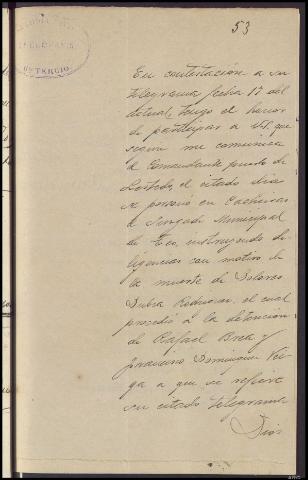 53
En contestación a su
telegrama fecha 17 del
actual, tengo el honor
de participar a V.S. que
según me comunica
el Comandante puesto de
el citado dia
se personó en Cacheiras
el Juzgado Municipal
de Teo, instruyendo di-
ligencias con motivo de
la muerte de Dolores
Rodriguez, el cual
procedió a la detención
de Rafael Brea y
Dominguez Vei-
ga a que se refiere
su citado telegrama
Dios